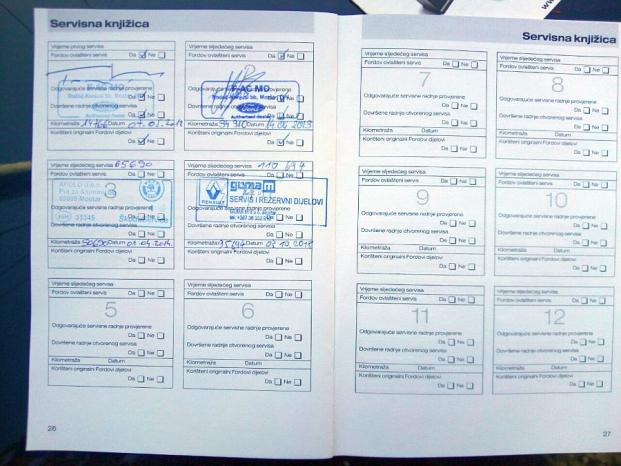 Servisna knjižica
Vrijeme prvog servisa
Fordov ovlašteni servis Da Ne
Odgovarajuće servisne radnje provjerene
Da Ne
Dovršene radnje otvorenog servisa
Da Ne
Kilometraža Datum
Korišteni originalni Fordovi dijelovi
Da Ne
Vrijeme sljedećeg servisa
Fordov ovlašteni servis Da Ne
FAC MO
Ford
Odgovarajuće servisne radnje provjerene
Da Ne
Dovršene radnje otvorenog servisa
Da Ne
Kilometraža Datum
Korišteni originalni Fordovi dijelovi
Da Ne
Vrijeme sljedećeg servisa 65690
Fordov ovlašteni servis Da Ne
3
APOLO d.o.o.
88000 Mostar
Odgovarajuće servisne radnje provjerene
Da Ne
Dovršene radnje otvorenog servisa
Da Ne
Kilometraža Datum
Korišteni originalni Fordovi dijelovi
Da Ne
Vrijeme sljedećeg servisa
Fordov ovlašteni servis Da Ne
RENAULT
guma m
SERVIS I REZERVNI DIJELOVI
Da Ne
Dovršene radnje otvorenog servisa
Da Ne
Kilometraža Datum
Korišteni originalni Fordovi dijelovi
Da Ne
Vrijeme sljedećeg servisa
Fordov ovlašteni servis Da Ne
5
Odgovarajuće servisne radnje provjerene
Da Ne
Dovršene radnje otvorenog servisa
Da Ne
Kilometraža Datum
Korišteni originalni Fordovi dijelovi
Da Ne
Vrijeme sljedećeg servisa
Fordov ovlašteni servis Da Ne
6
Odgovarajuće servisne radnje provjerene
Da Ne
Dovršene radnje otvorenog servisa
Da Ne
Kilometraža Datum
Korišteni originalni Fordovi dijelovi
Da Ne
26
Servisna knjižica
Vrijeme sljedećeg servisa
Fordov ovlašteni servis Da Ne
7
Odgovarajuće servisne radnje provjerene
Da Ne
Dovršene radnje otvorenog servisa
Da Ne
Kilometraža Datum
Korišteni originalni Fordovi dijelovi
Da Ne
Vrijeme sljedećeg servisa
Fordov ovlašteni servis Da Ne
8
Odgovarajuće servisne radnje provjerene
Da Ne
Dovršene radnje otvorenog servisa
Da Ne
Kilometraža Datum
Korišteni originalni Fordovi dijelovi
Da Ne
Vrijeme sljedećeg servisa
Fordov ovlašteni servis Da Ne
9
Odgovarajuće servisne radnje provjerene
Da Ne
Dovršene radnje otvorenog servisa
Da Ne
Kilometraža Datum
Korišteni originalni Fordovi dijelovi
Da Ne
Vrijeme sljedećeg servisa
Fordov ovlašteni servis Da Ne
10
Odgovarajuće servisne radnje provjerene
Da Ne
Dovršene radnje otvorenog servisa
Da Ne
Kilometraža Datum
Korišteni originalni Fordovi dijelovi
Da Ne
Vrijeme sljedećeg servisa
Fordov ovlašteni servis Da Ne
11
Odgovarajuće servisne radnje provjerene
Da Ne
Dovršene radnje otvorenog servisa
Da Ne
Kilometraža Datum
Korišteni originalni Fordovi dijelovi
Da Ne
Vrijeme sljedećeg servisa
Fordov ovlašteni servis Da Ne
12
Odgovarajuće servisne radnje provjerene
Da Ne
Dovršene radnje otvorenog servisa
Da Ne
Kilometraža Datum
Korišteni originalni Fordovi dijelovi
Da Ne
27